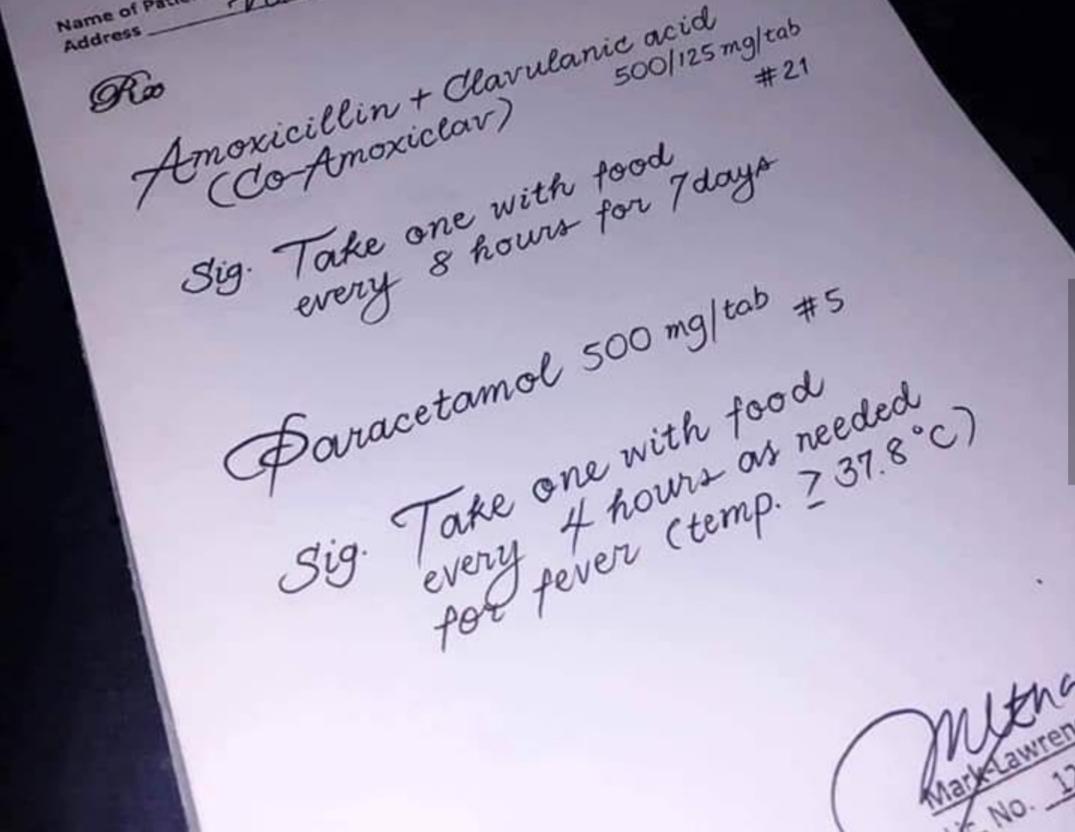 Name of
Address
Rx
Amoxicillin + Clavulanic acid
500/125 mg/tab
(Co-Amoxiclav)
#21
Sig. Take one with food
every 8 hours for 7 days
Paracetamol 500 mg/tab #5
Sig. Take one with food
every 4 hours as needed
for fever (temp. ≥ 37.8°C)
Mark-Lawren
No. 17